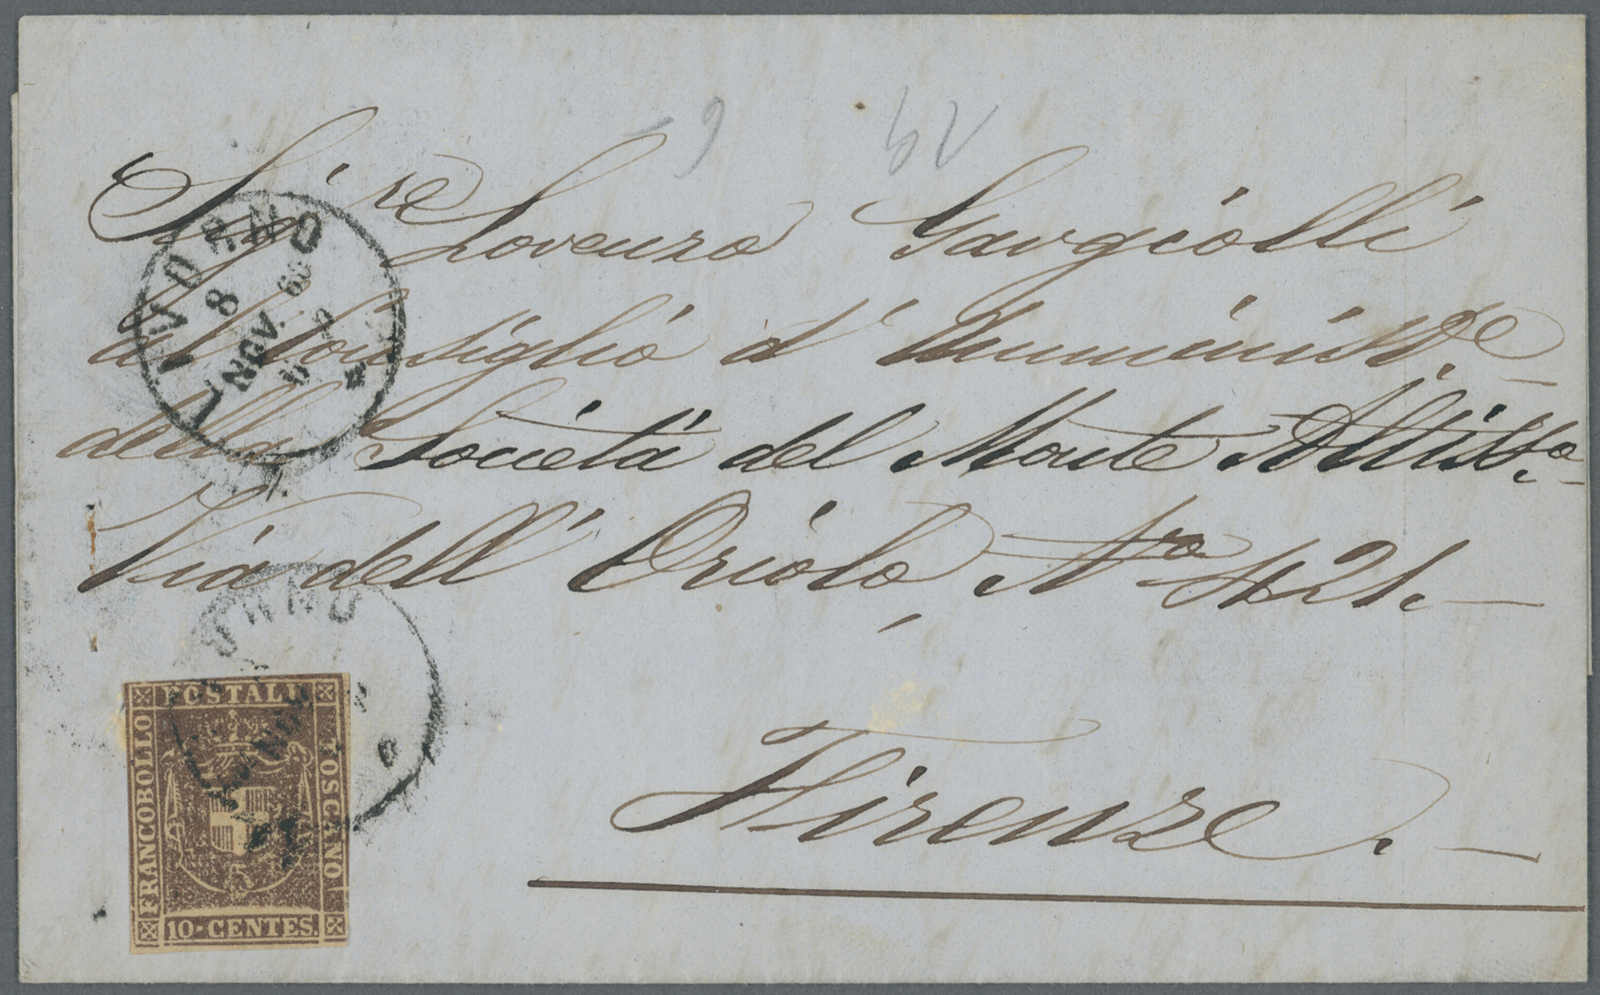 Sig.re Lorenzo Gargiolli
al Consiglio d'Amminist.e
della Società del Monte Altiss.o
Via dell' Oriolo, N.ro 421.
Firenze.
LIVORNO
8
NOV. 60
FRANCOBOLLO
POSTALE
TOSCANO
10-CENTES.
62